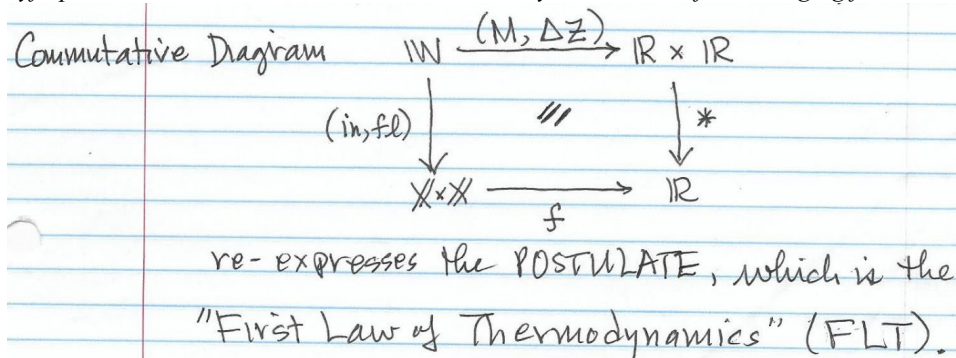 Commutative Diagram 𝕎 (M, ΔZ) ℝ × ℝ
(in, fl) /// *
𝕏×𝕏 f ℝ
re-expresses the POSTULATE, which is the
"First Law of Thermodynamics" (FLT).